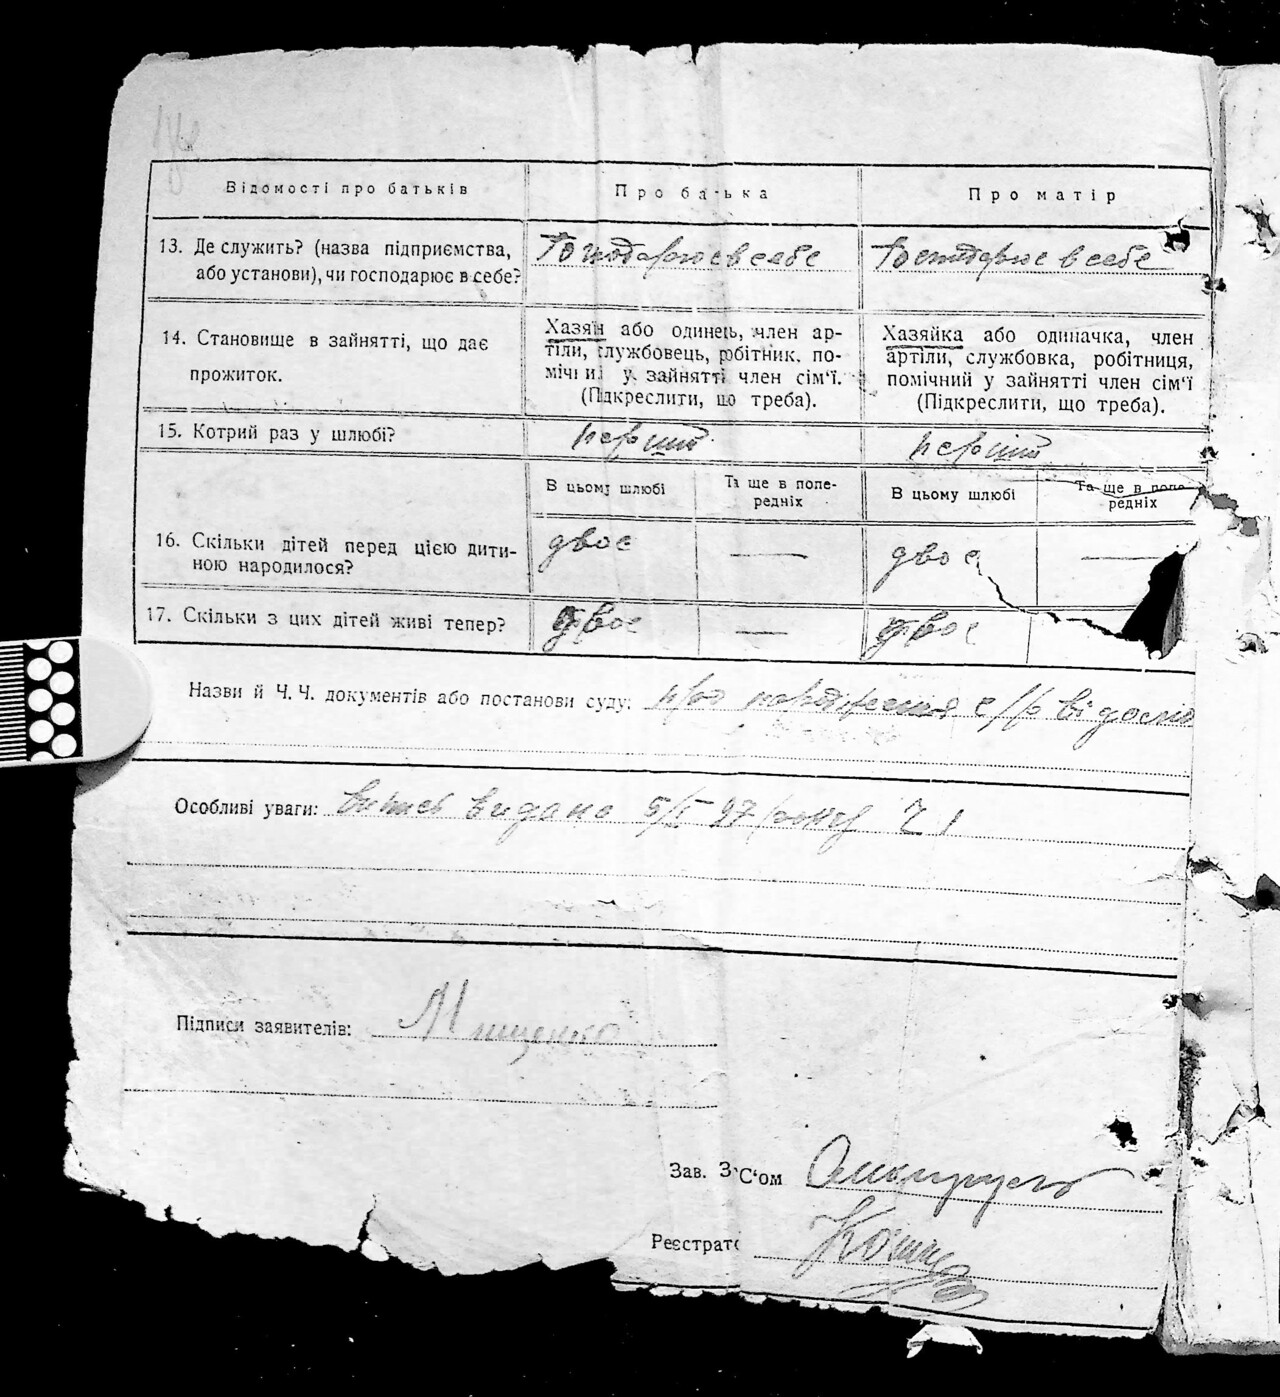 Відомості про батьків Про батька Про матір
13. Де служить? (назва підприємства, Господарює в себе Господарює в себе
або установи), чи господарює в себе?
14. Становище в зайнятті, що дає Хазяїн або одинець, член ар- Хазяйка або одиначка, член
прожиток. тіли, службовець, робітник, по- артіли, службовка, робітниця,
мічний у зайнятті член сім'ї. помічний у зайнятті член сім'ї
(Підкреслити, що треба). (Підкреслити, що треба).
15. Котрий раз у шлюбі? перший перший
В цьому шлюбі Та ще в попе- В цьому шлюбі Та ще в попе-
редніх редніх
16. Скільки дітей перед цією дити- двоє — двоє —
ною народилося?
17. Скільки з цих дітей живі тепер? двоє — двоє
Назви й Ч. Ч. документів або постанови суду: про народження с/р відомо
Особливі уваги: витяг видано 5/I 27 року Ч 1
Підписи заявителів: Мищенко
Зав. З'С'ом
Реєстрат